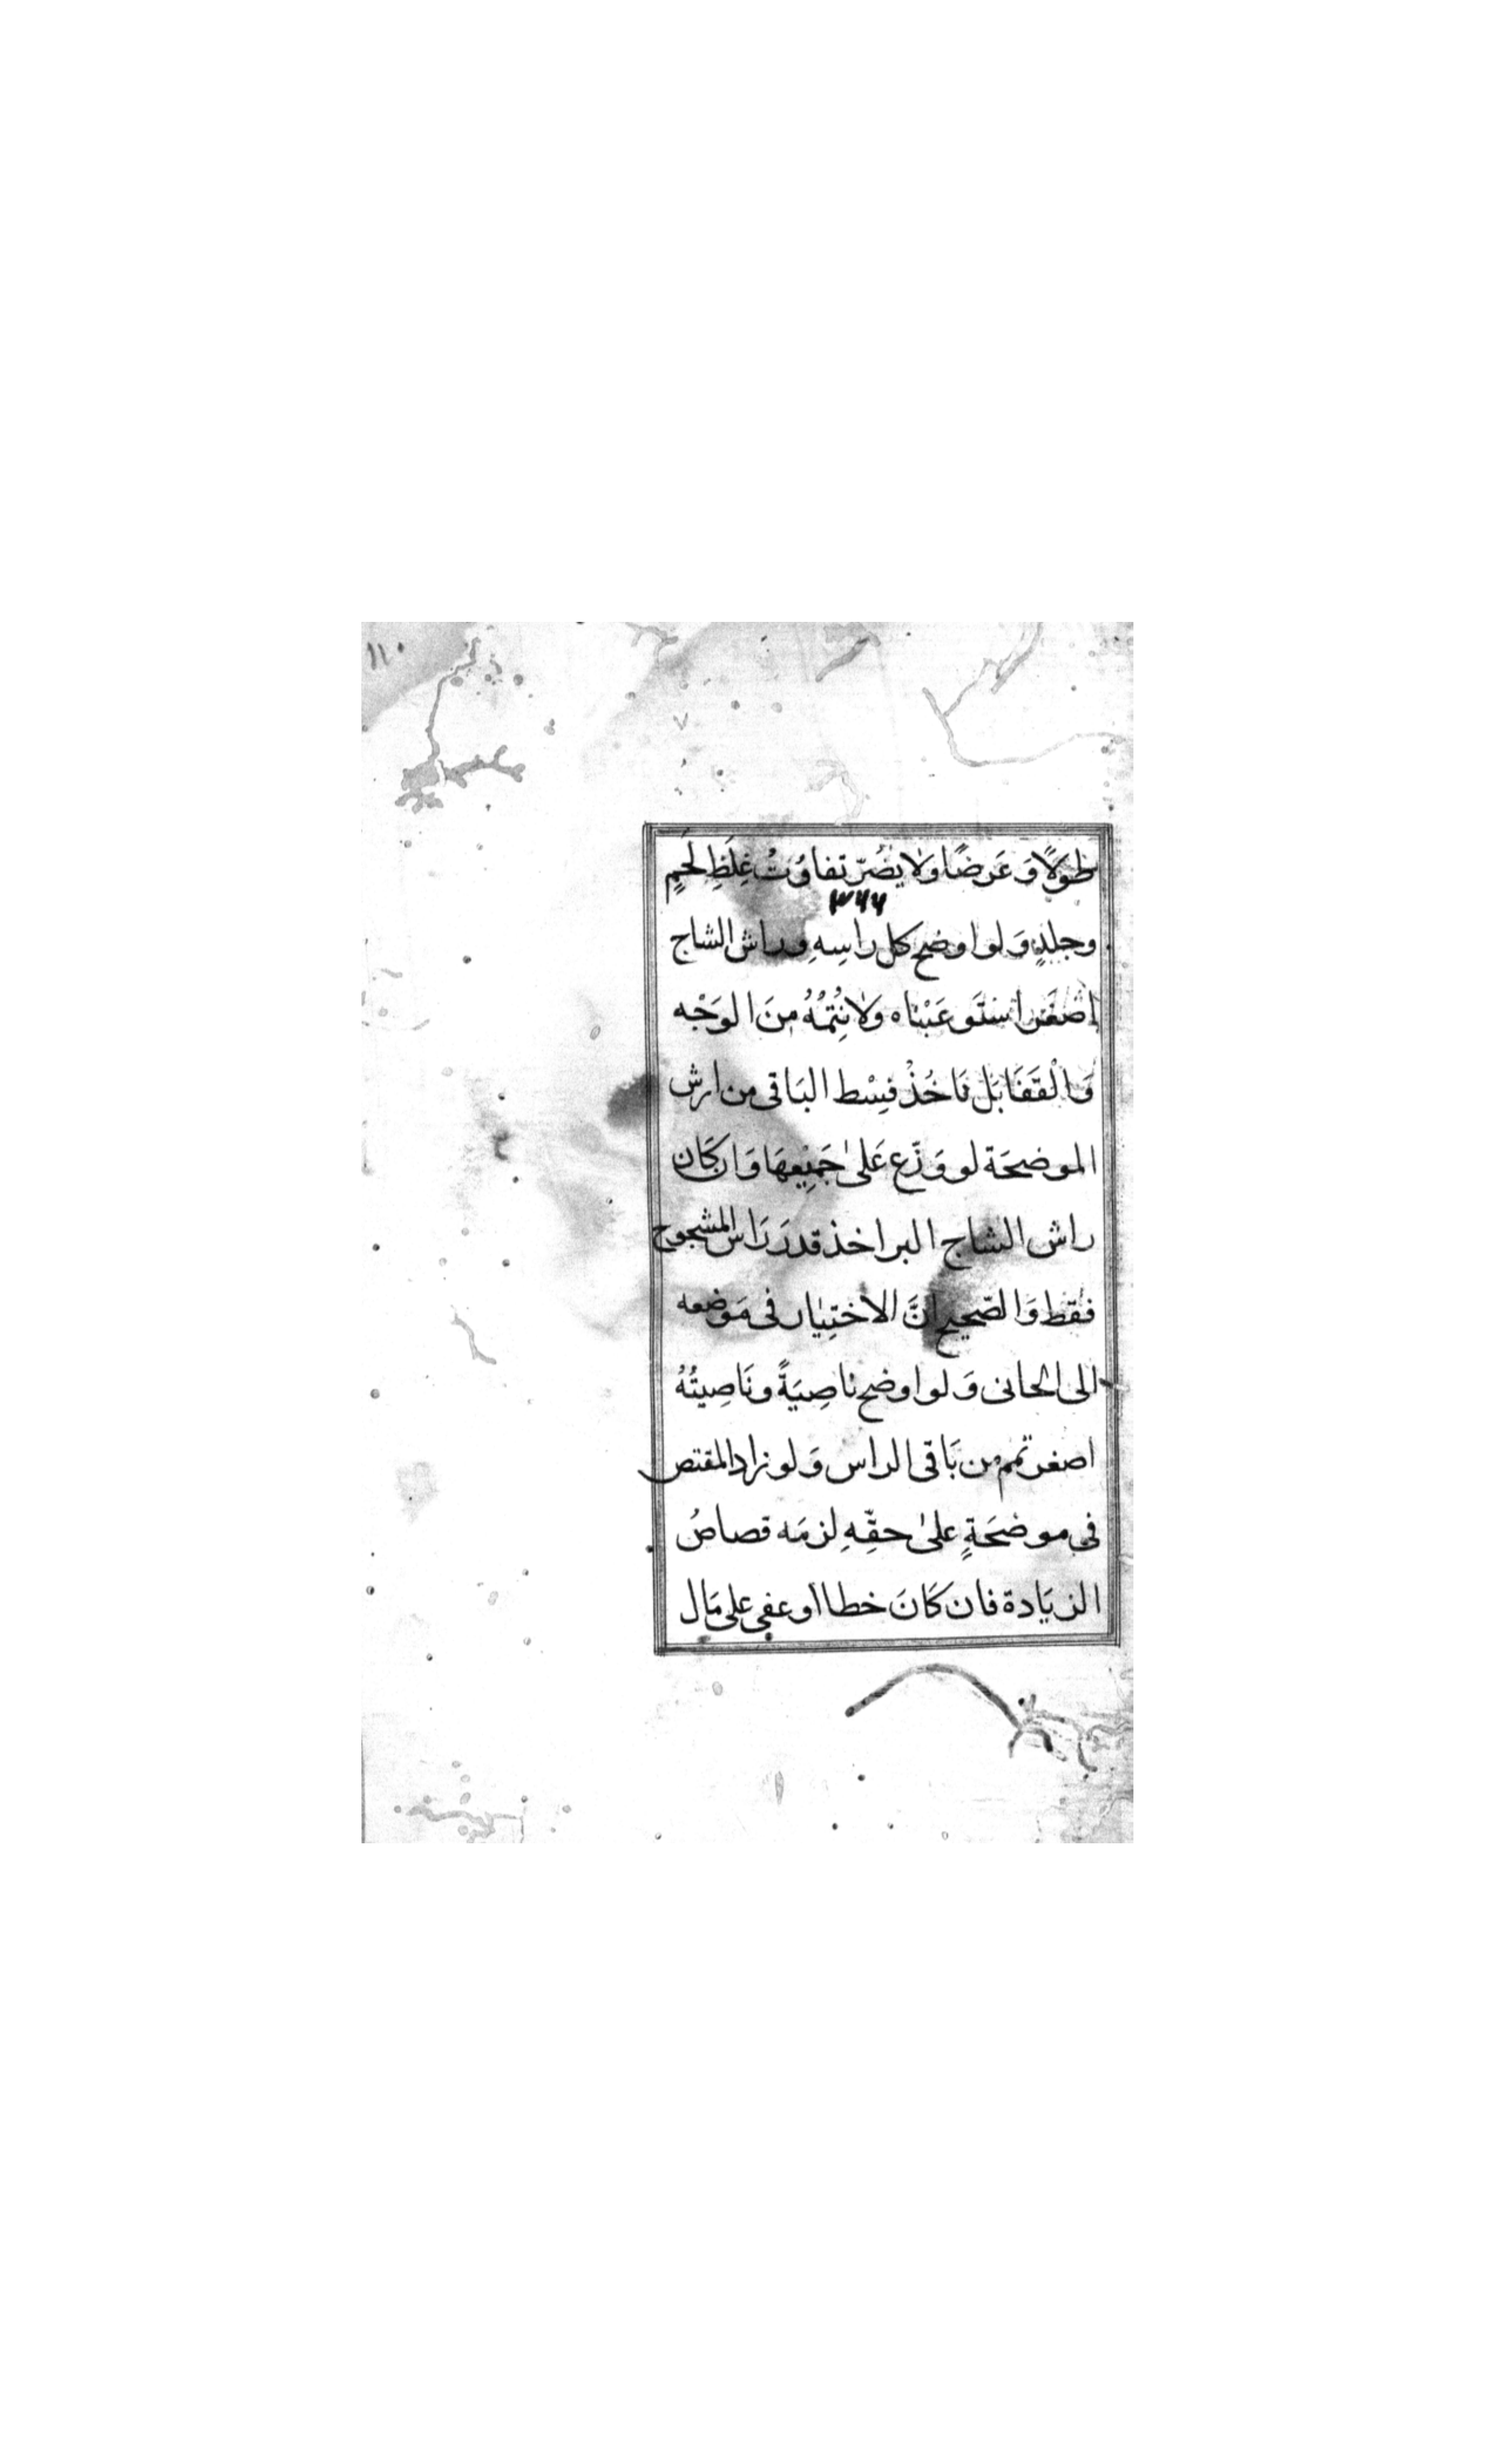 ١١٠
طولًا وَعَرضًا ولا يضُرّ تفاوُتُ غِلَظِ لَحمٍ
٣٦٦
وجلدٍ وَلو اوضح كل راسِهِ وراش الشاج
اصْغَر اسْتَوعَبْناه ولا نُتِمُّهُ مِنَ الوَجْه
وَالْقَفَا بَل نَاخُذْ قِسْط البَاقي من ارش
الموضحَة لو وَزّع عَلىٰ جَمِيْعِهَا وَان كَان
راش الشاج البر اخذ قدرَ رَاس المشجوج
فقط وَالصّحيح انَّ الاختِيٰار في مَوضعه
الى الجانى وَلو اوضح ناصِيَةً ونَاصِيتُهُ
اصغر تمم من بَاقي الراس وَلو زاد المقتص
في موضحَةٍ علىٰ حقِّهِ لزمَه قصاصُ
الزيَادة فان كَانَ خطا او عفى على مَال